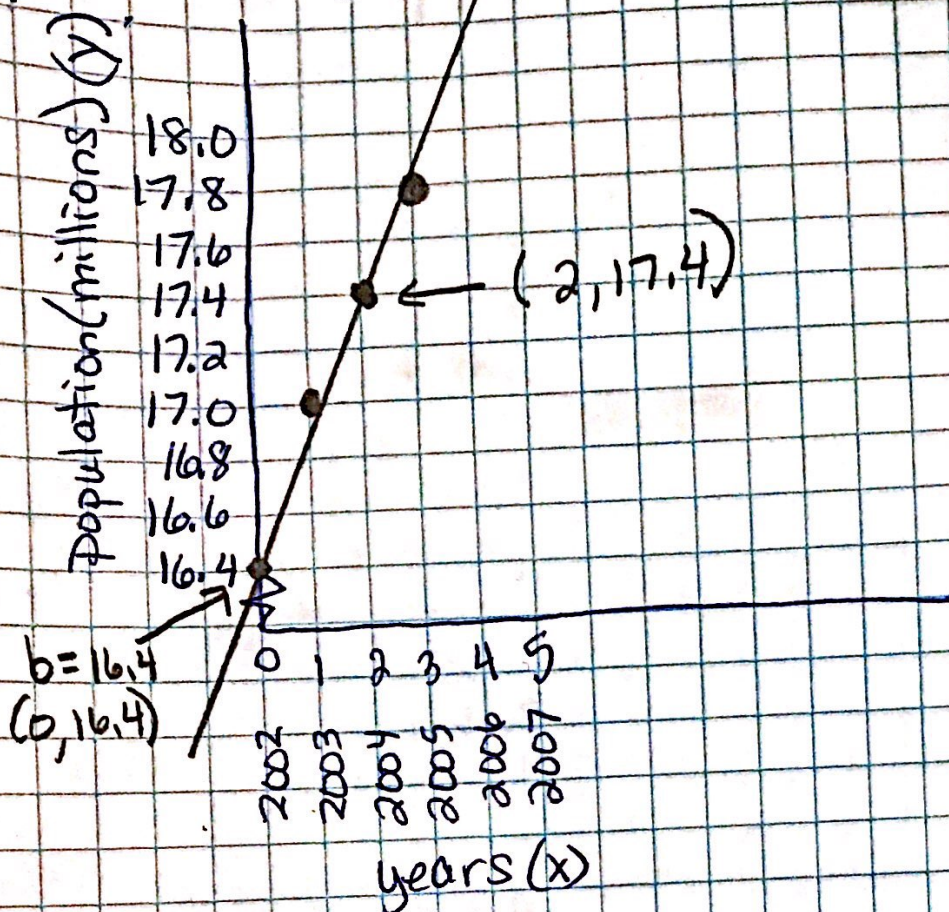 Population (millions) (y)
18.0
17.8
17.6
17.4
(2,17.4)
17.2
17.0
16.8
16.6
16.4
b=16.4
(0,16.4)
0 1 2 3 4 5
2002 2003 2004 2005 2006 2007
years (x)